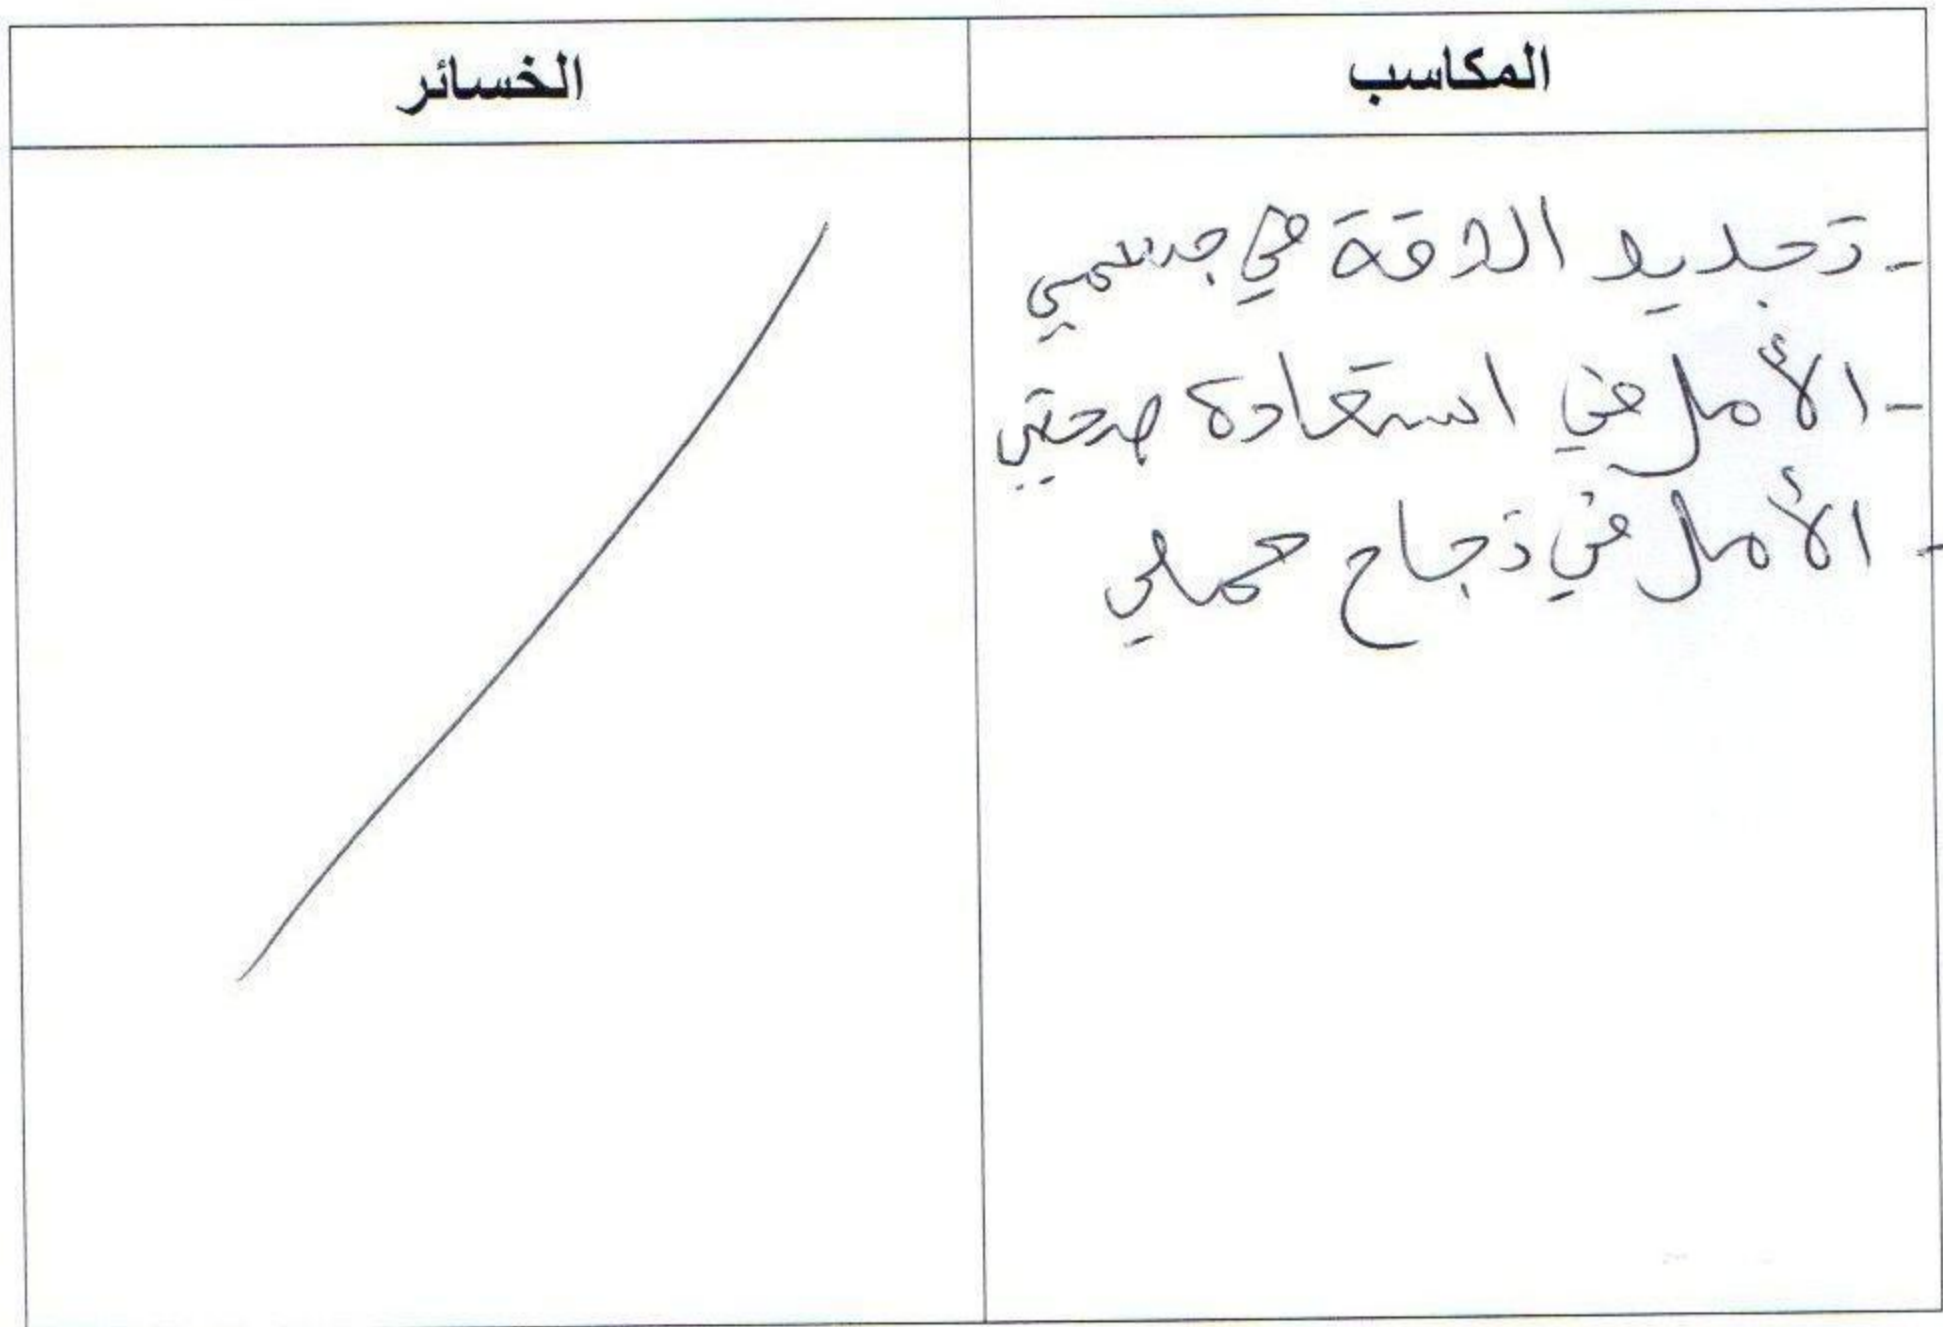 المكاسب
الخسائر
- تجديد الثقة في جسمي
- الأمل في استعادة صحتي
- الأمل في نجاح حملي